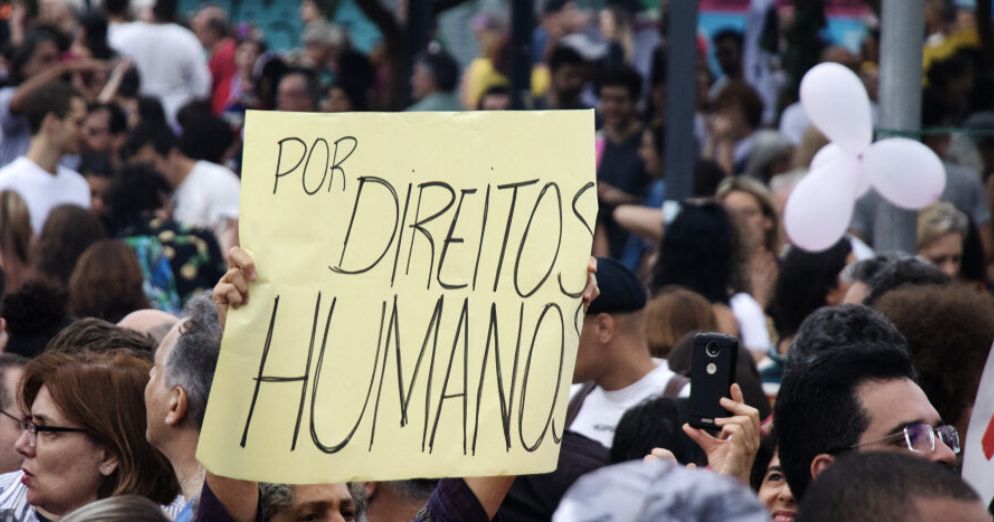 POR
DIREITOS
HUMANOS